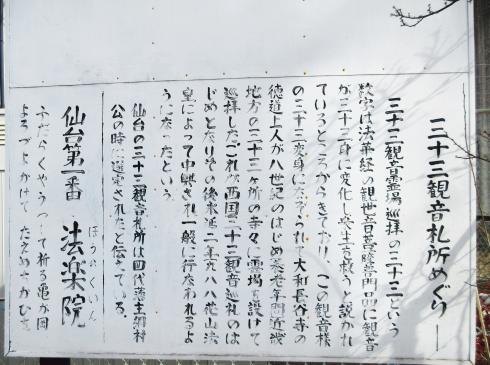 三十三観音札所めぐり
三十三観音霊場巡拝の三十三という
数字は法華経の観世音菩薩普門品に観音
が三十三身に変化し衆生を救うと説かれ
ているところからきており、この観音様
の三十三変身になぞられ、大和長谷寺の
徳道上人が八世紀のはじめ養老年間近畿
地方の三十三ヶ所の寺々に霊場を設けて
巡拝したこれが西国三十三観音巡礼のは
じめとなりその後永延二年九八八花山法
皇によって中興され一般に行なわれるよ
うになったという。
仙台の三十三観音札所は四代藩主綱村
公の時に選定されたと伝えている。
仙台第一番 法楽院
ほうらくいん
ふだらくやうつして祈る亀が岡
よろづよかけて たえぬちかひを